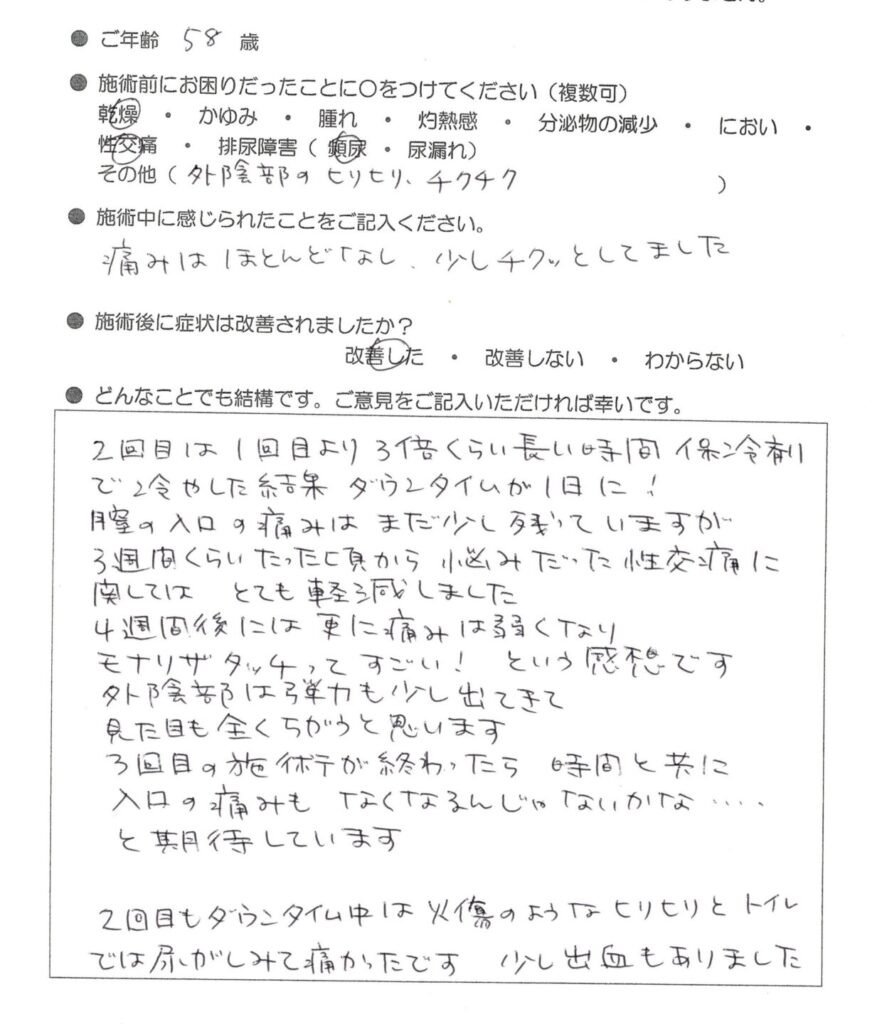 ● ご年齢 58 歳
● 施術前にお困りだったことに〇をつけてください（複数可）
乾燥 ・ かゆみ ・ 腫れ ・ 灼熱感 ・ 分泌物の減少 ・ におい ・
性交痛 ・ 排尿障害（ 頻尿 ・ 尿漏れ）
その他（ 外陰部の ヒリヒリ、チクチク ）
● 施術中に感じられたことをご記入ください。
痛みは ほとんどなし、少しチクッとしてました
● 施術後に症状は改善されましたか？
改善した ・ 改善しない ・ わからない
● どんなことでも結構です。ご意見をご記入いただければ幸いです。
2回目は 1回目より 3倍くらい長い時間 保冷剤
で冷やした結果 ダウンタイムが1日に！
膣の入口の痛みは まだ少し残っていますが
3週間くらいたった頃から 悩みだった性交痛に
関しては とても軽減しました
4週間後には 更に痛みは弱くなり
モナリザタッチって すごい！ という感想です
外陰部は弾力も少し出てきて
見た目も全くちがうと思います
3回目の施術が終わったら 時間と共に
入口の痛みも なくなるんじゃないかな‥‥
と期待しています
2回目もダウンタイム中は 火傷のようなヒリヒリと トイレ
では尿がしみて痛かったです 少し出血もありました